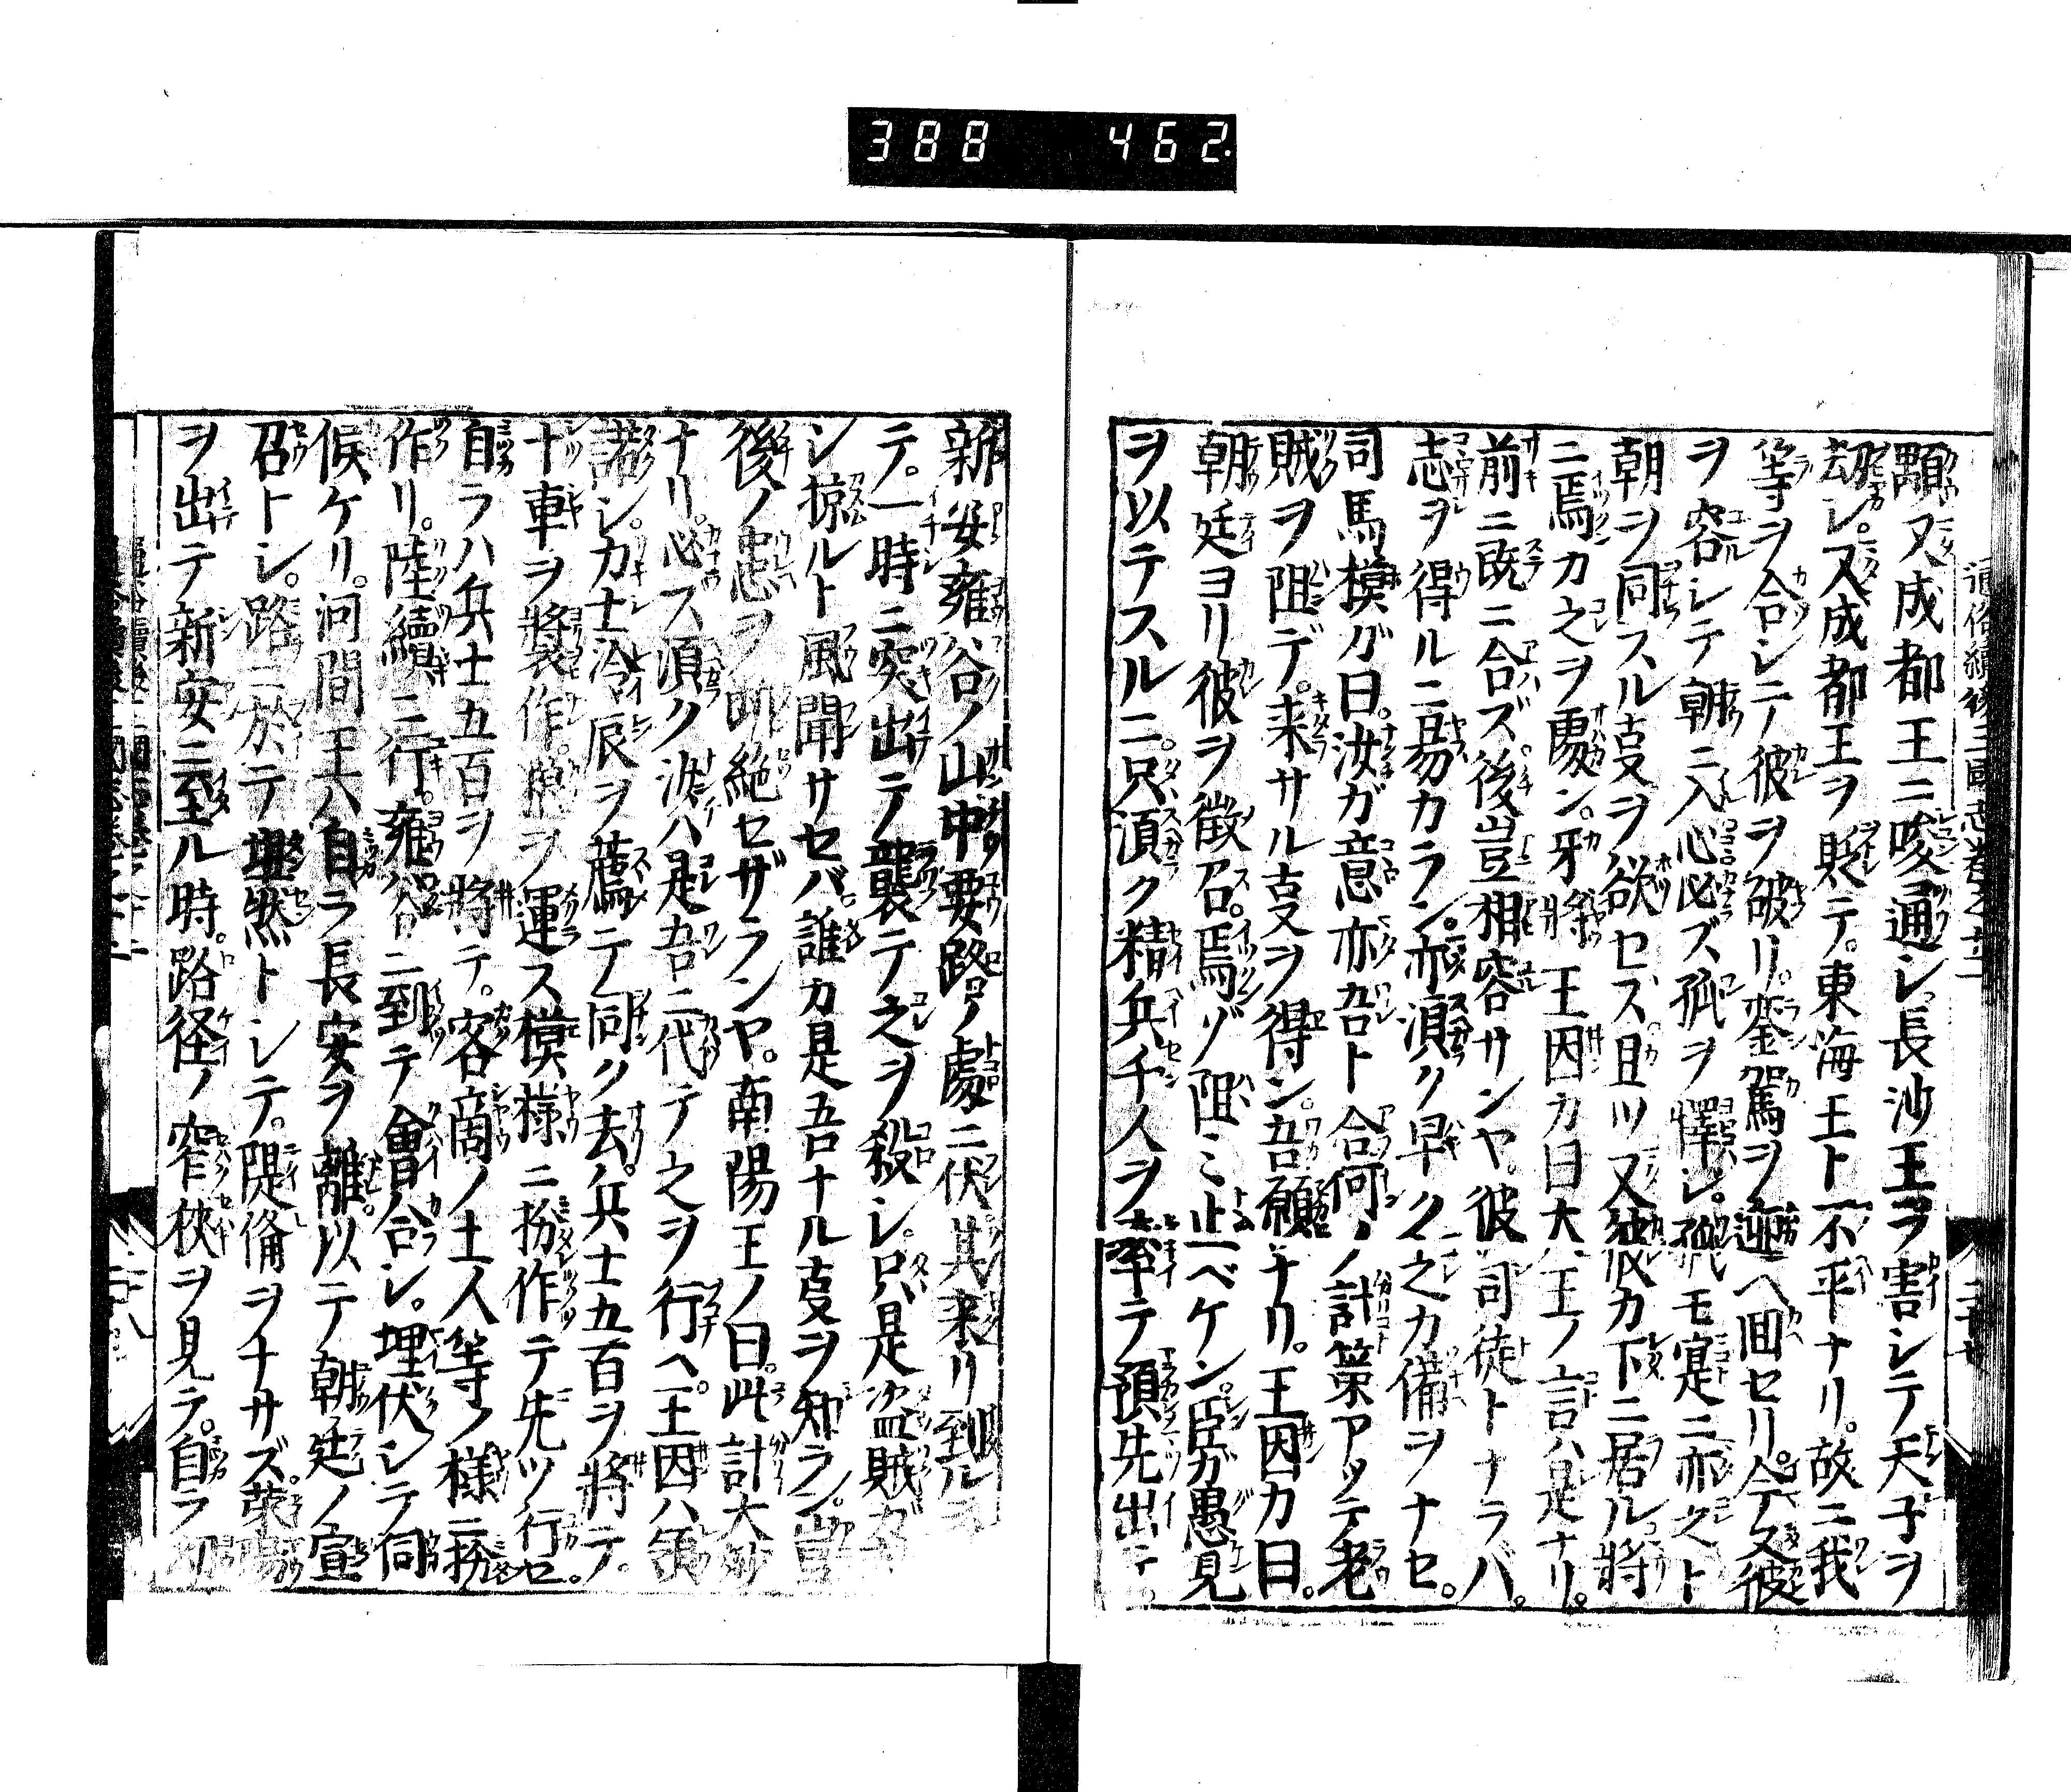 388 462
通俗續後三國志卷之十二
顒又成都王ニ唆通シ長沙王ヲ害シテ天子ヲ
劫シ。又成都王ヲ貶テ。東海王ト不平ナリ。故ニ我
等ヲ合シテ彼ヲ破リ。鑾駕ヲ迎ヘ回セリ。今又彼
ヲ容レテ朝ニ入心必ズ孤ヲ懌シ。孤モ寔ニ亦之ト
朝ヲ同スル叓ヲ欲セズ。且ツ又彼カ下ニ居ル將
ニ焉カ之ヲ處ン。牙將王因カ曰大王ノ言ハ是ナリ。
前ニ既ニ合ズ。後豈相容サンヤ。彼司徒トナラバ。
志ヲ得ルニ易カラン。亦須ク早ク之カ備ヲナセ。
司馬模ガ曰。汝ガ意亦吾ト合何ノ計策アツテ老
賊ヲ阻デ。来サル叓ヲ得ン。吾願ナリ。王因カ曰。
朝廷ヨリ彼ヲ徴召。焉ゾ阻ミ止ベケン。臣ガ愚見
ヲ以テスルニ。只須ク精兵千人ヲ率テ預先出テ。
新安雍谷ノ山中要路ノ處ニ伏其来リ到ル
テ。一時ニ突出テ襲テ之ヲ殺シ。只是盗賊ガ
シ掠ルト風聞サセバ。誰カ是吾ナル叓ヲ知ラン。豈
後ノ患ヲ断絶セザランヤ。南陽王ノ曰。此計大妙
ナリ。必ス須ク汝ハ是吾ニ代テ之ヲ行ヘ。王因ハ領
諾シ。力士冷辰ヲ薦テ同ク去。兵士五百ヲ將テ。
十車ヲ裝作粮ヲ運ス模様ニ扮作テ先ツ行セ。
自ラハ兵士五百ヲ將テ。客商ノ土人等ノ様ニ扮
作リ。陸續ニ行。雍谷ニ到テ會合シ。埋伏シテ伺
候ケリ。河間王ハ自ラ長安ヲ離。以テ朝廷ノ宣
召トシ。路ニ於テ坦然トシテ。隄備ヲナサズ。滎陽
ヲ出テ新安ニ至ル時。路径ノ窄狹ヲ見テ。自ラ